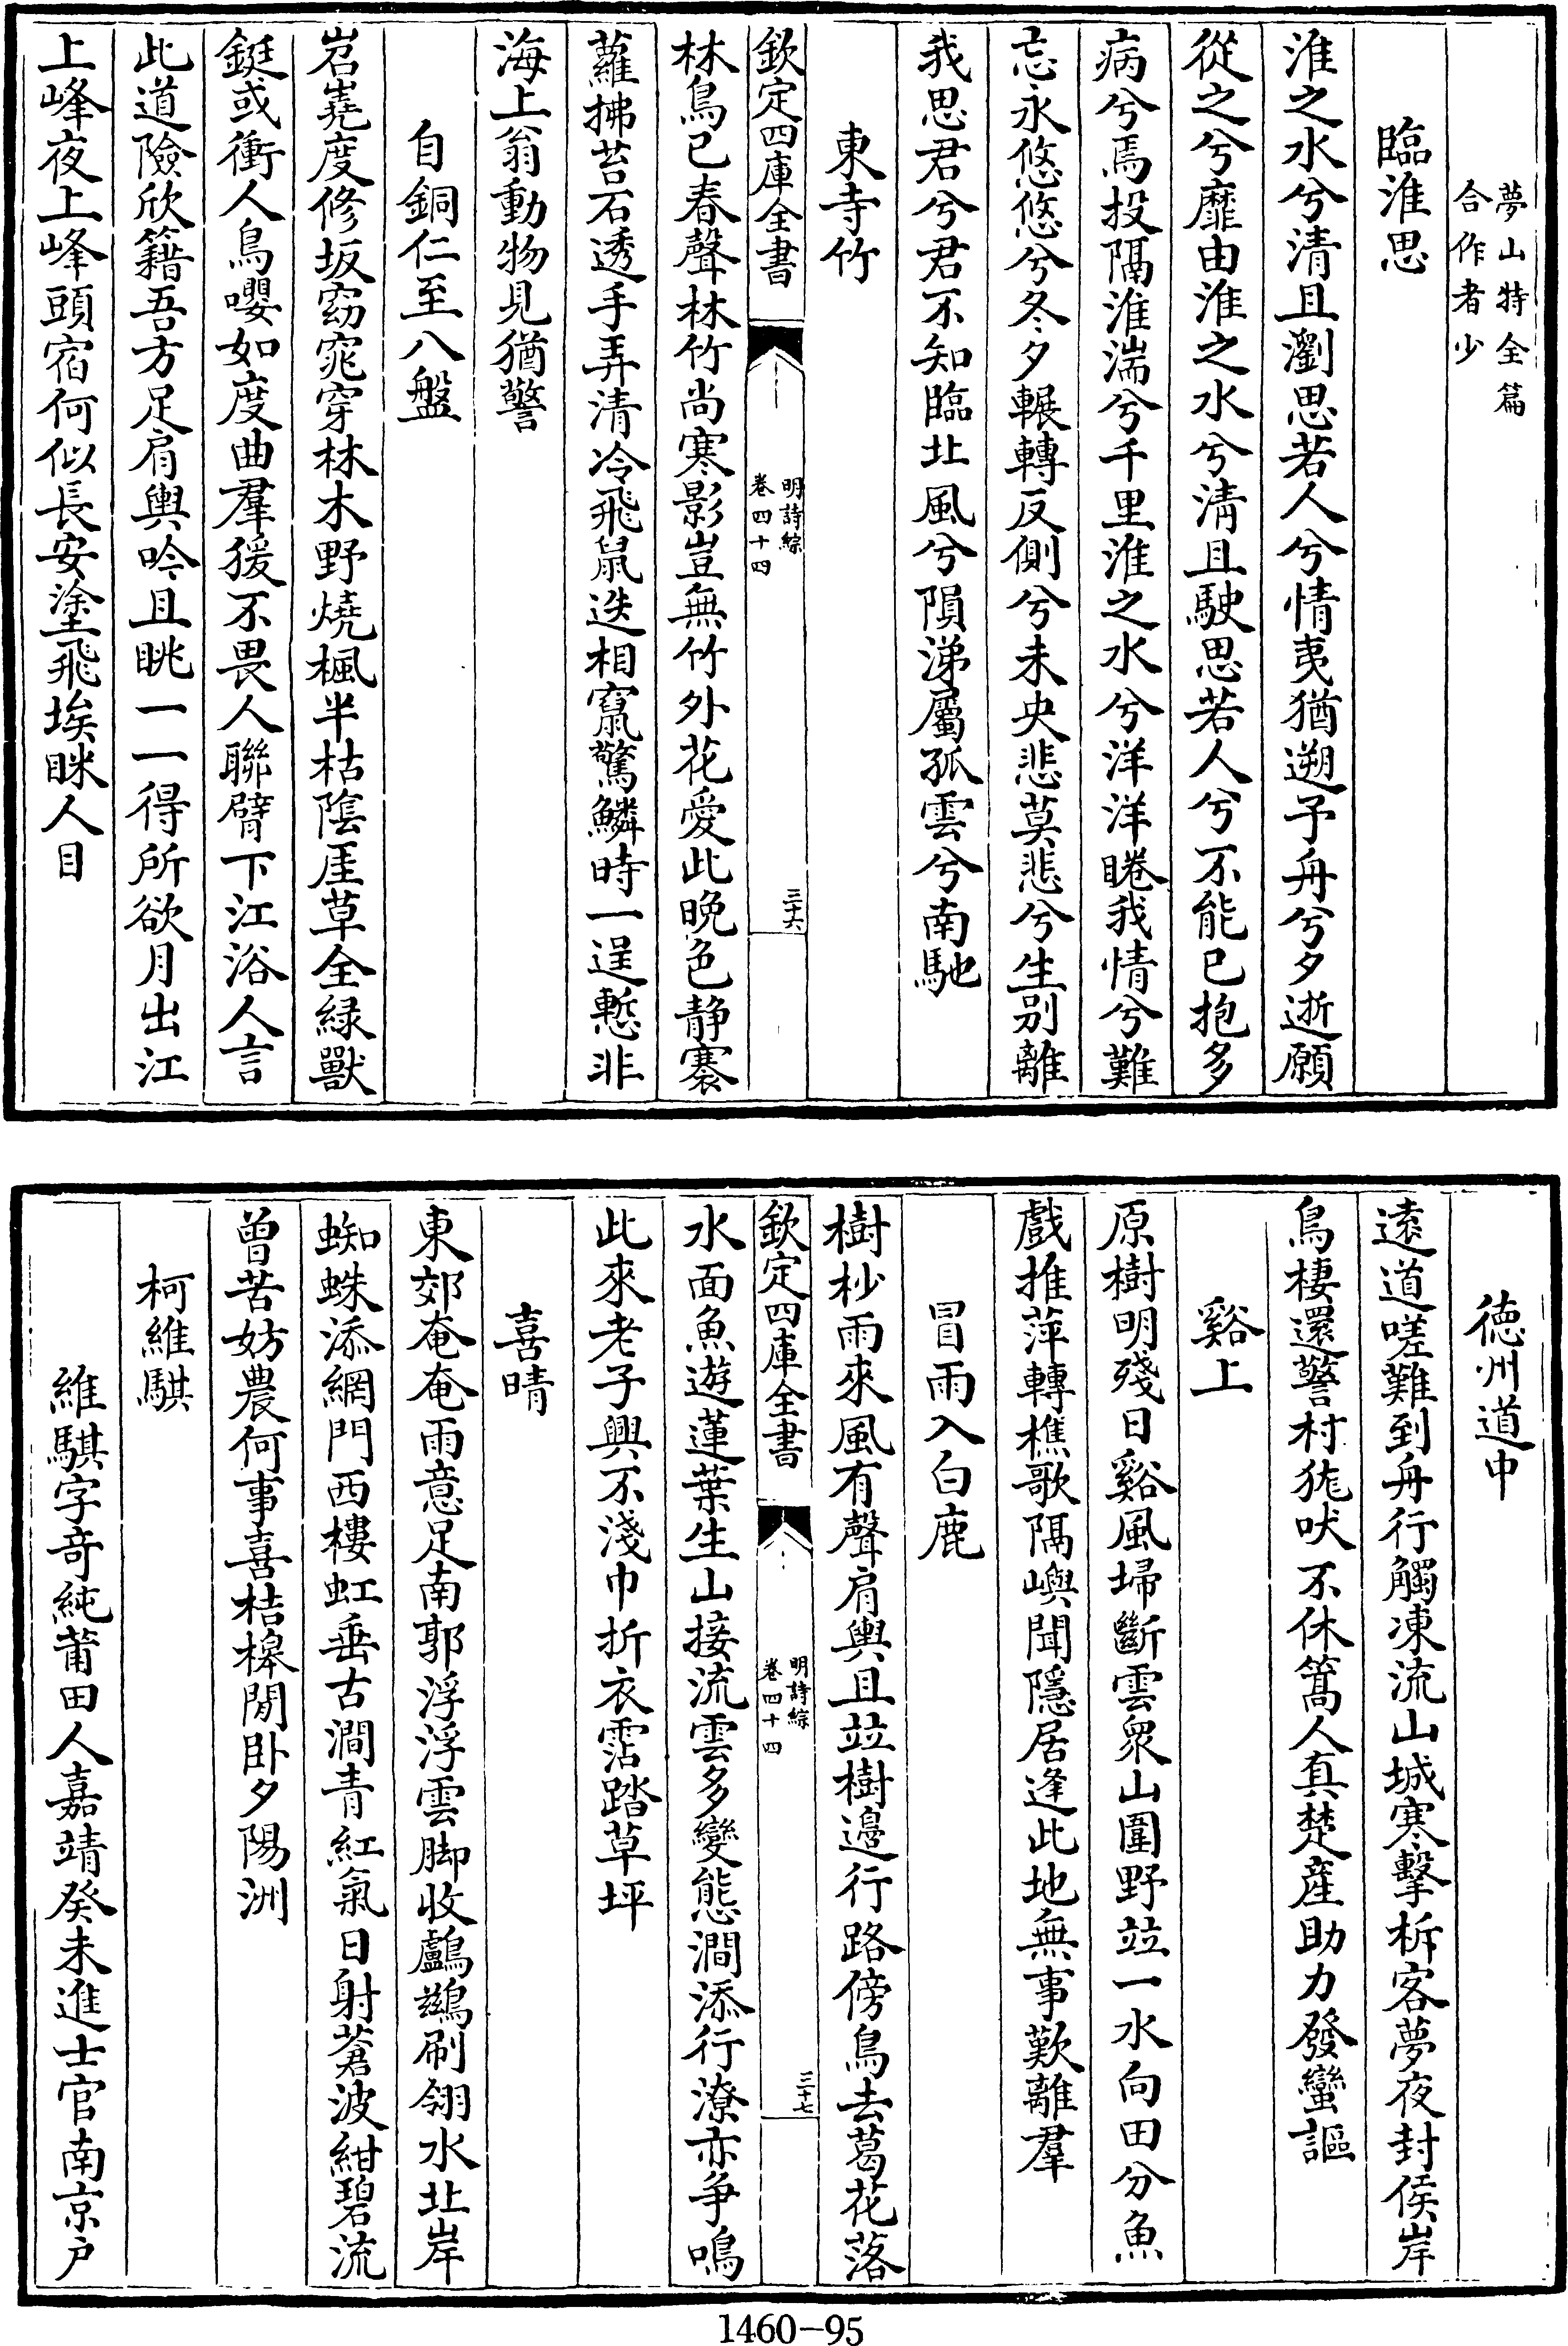 夢山特全篇
合作者少
臨淮思
淮之水兮清且瀏思若人兮情夷猶遡予舟兮夕逝願
從之兮靡由淮之水兮淸且駛思若人兮不能已抱多
病兮焉投隔淮湍兮千里淮之水兮洋洋睠我情兮難
忘永悠悠兮冬夕輾轉反側兮未央悲莫悲兮生别離
我思君兮君不知臨北風兮隕涕屬孤雲兮南馳
東寺竹
欽定四庫全書
明詩綜
卷四十四
三十六
林鳥已春聲林竹尚寒影豈無竹外花愛此晩色静褰
蘿拂苔石透手弄清冷飛鼠迭相竄驚鱗時一逞慙非
海上翁動物見猶警
自銅仁至八盤
岧嶤度修坂窈窕穿林木野燒楓半枯陰厓草全緑獸
鋌或衝人鳥嚶如度曲羣猨不畏人聯臂下江浴人言
此道險欣籍吾方足肩輿吟且眺一一得所欲月出江
上峰夜上峰頭宿何似長安塗飛埃眯人目
德州道中
逺道嗟難到舟行觸凍流山城寒擊柝客夢夜封侯岸
鳥棲還警村狵吠不休篙人真楚産助力發蠻謳
谿上
原樹明殘日谿風埽斷雲衆山圍野竝一水向田分魚
戲推萍轉樵歌隔嶼聞隱居逢此地無事歎離羣
冒雨入白鹿
樹杪雨來風有聲肩輿且竝樹邉行路傍鳥去葛花落
欽定四庫全書
明詩綜
卷四十四
三十七
水面魚遊蓮葉生山接流雲多變態澗添行潦亦争鳴
此來老子興不淺巾折衣霑踏草坪
喜晴
東郊奄奄雨意足南郭浮浮雲脚收鸕鷀刷翎水北岸
蜘蛛添網門西樓虹垂古澗青紅氣日射蒼波紺碧流
曾苦妨農何事喜桔槔閒卧夕陽洲
柯維騏
維騏字竒純莆田人嘉靖癸未進士官南京户
1460-95